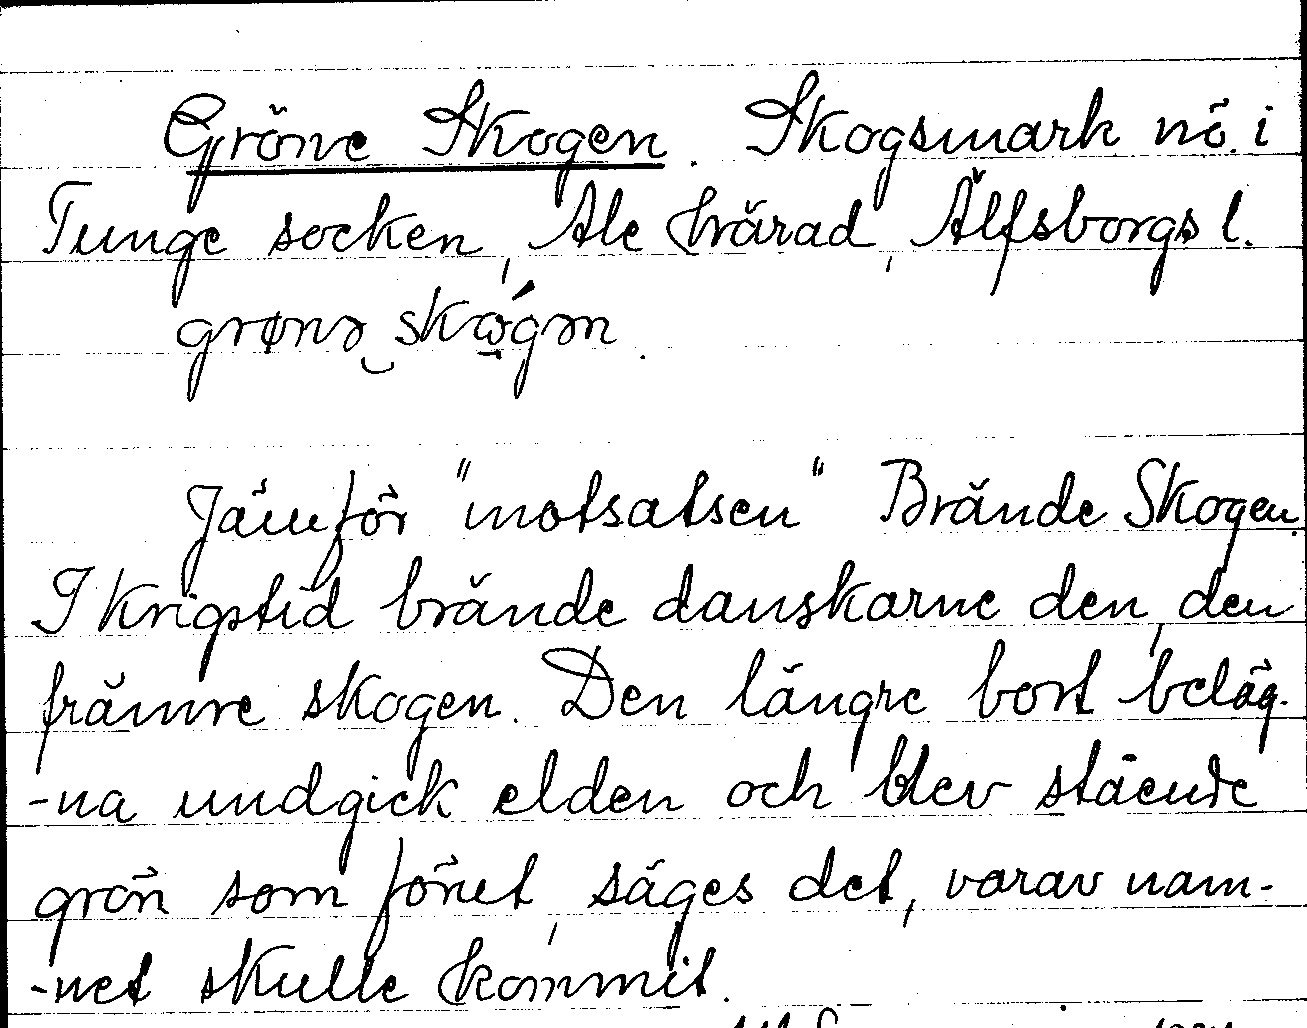 Gröne Skogen. Skogsmark nö. i
Tunge socken, Ale härad, Älfsborgs l.
grønə skǿ̱gən.
Jämför "motsatsen" Brände Skogen.
I krigstid brände danskarne den, den
främre skogen. Den längre bort beläg-
-na undgick elden och blev stående
grön som förut, säges det, varav nam-
-net skulle kommit.